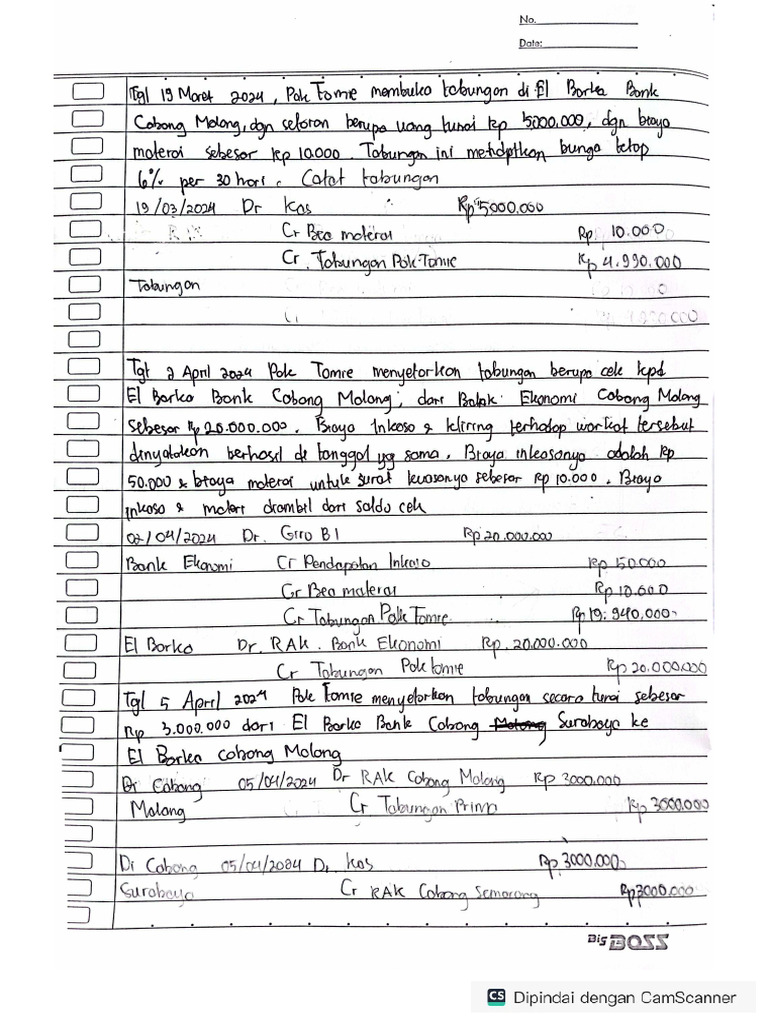 No.
Date:
Tgl 19 Maret 2024, Pak Tomie membuka tabungan di El Barka Bank
Cabang Malang, dgn setoran berupa uang tunai Rp 5000.000, dgn biaya
materai sebesar Rp 10.000. Tabungan ini menetapkan bunga tetap
6% per 30 hari. Catat tabungan
19/03/2024 Dr Kas Rp 5000.000
Cr Bea materai Rp. 10.000
Cr. Tabungan Pak Tomie Rp 4.990.000
Tabungan
Tgl 2 April 2024 Pak Tomie menyetorkan tabungan berupa cek kpd
El Barka Bank Cabang Malang, dari Bank Ekonomi Cabang Malang
sebesar Rp 20.000.000. Biaya Inkaso & kliring terhadap warkat tersebut
dinyatakan berhasil di tanggal yg sama. Biaya inkasonya adalah Rp
50.000 & biaya materai untuk surat kuasanya sebesar Rp 10.000. Biaya
inkaso & matari diambil dari saldo cek
02/04/2024 Dr. Giro BI Rp 20.000.000
Bank Ekonomi Cr Pendapatan Inkaso Rp 50.000
Cr Bea materai Rp 10.000
Cr Tabungan Pak Tomie Rp 19.940.000
El Barka Dr. RAK. Bank Ekonomi Rp. 20.000.000
Cr Tabungan Pak tomie Rp 20.000.000
Tgl 5 April 2024 Pak Tomie menyetorkan tabungan secara tunai sebesar
Rp 3.000.000 dari El Barka Bank Cabang Malang Surabaya ke
El Barka cabang Malang
Di Cabang 05/04/2024 Dr RAK Cabang Malang Rp 3000.000
Malang Cr Tabungan Prima Rp 3000.000
Di Cabang 05/04/2084 Dr Kas Rp 3000.000
Surabaya Cr RAK Cabang Semarang Rp 3000.000
Big BOSS
CS Dipindai dengan CamScanner